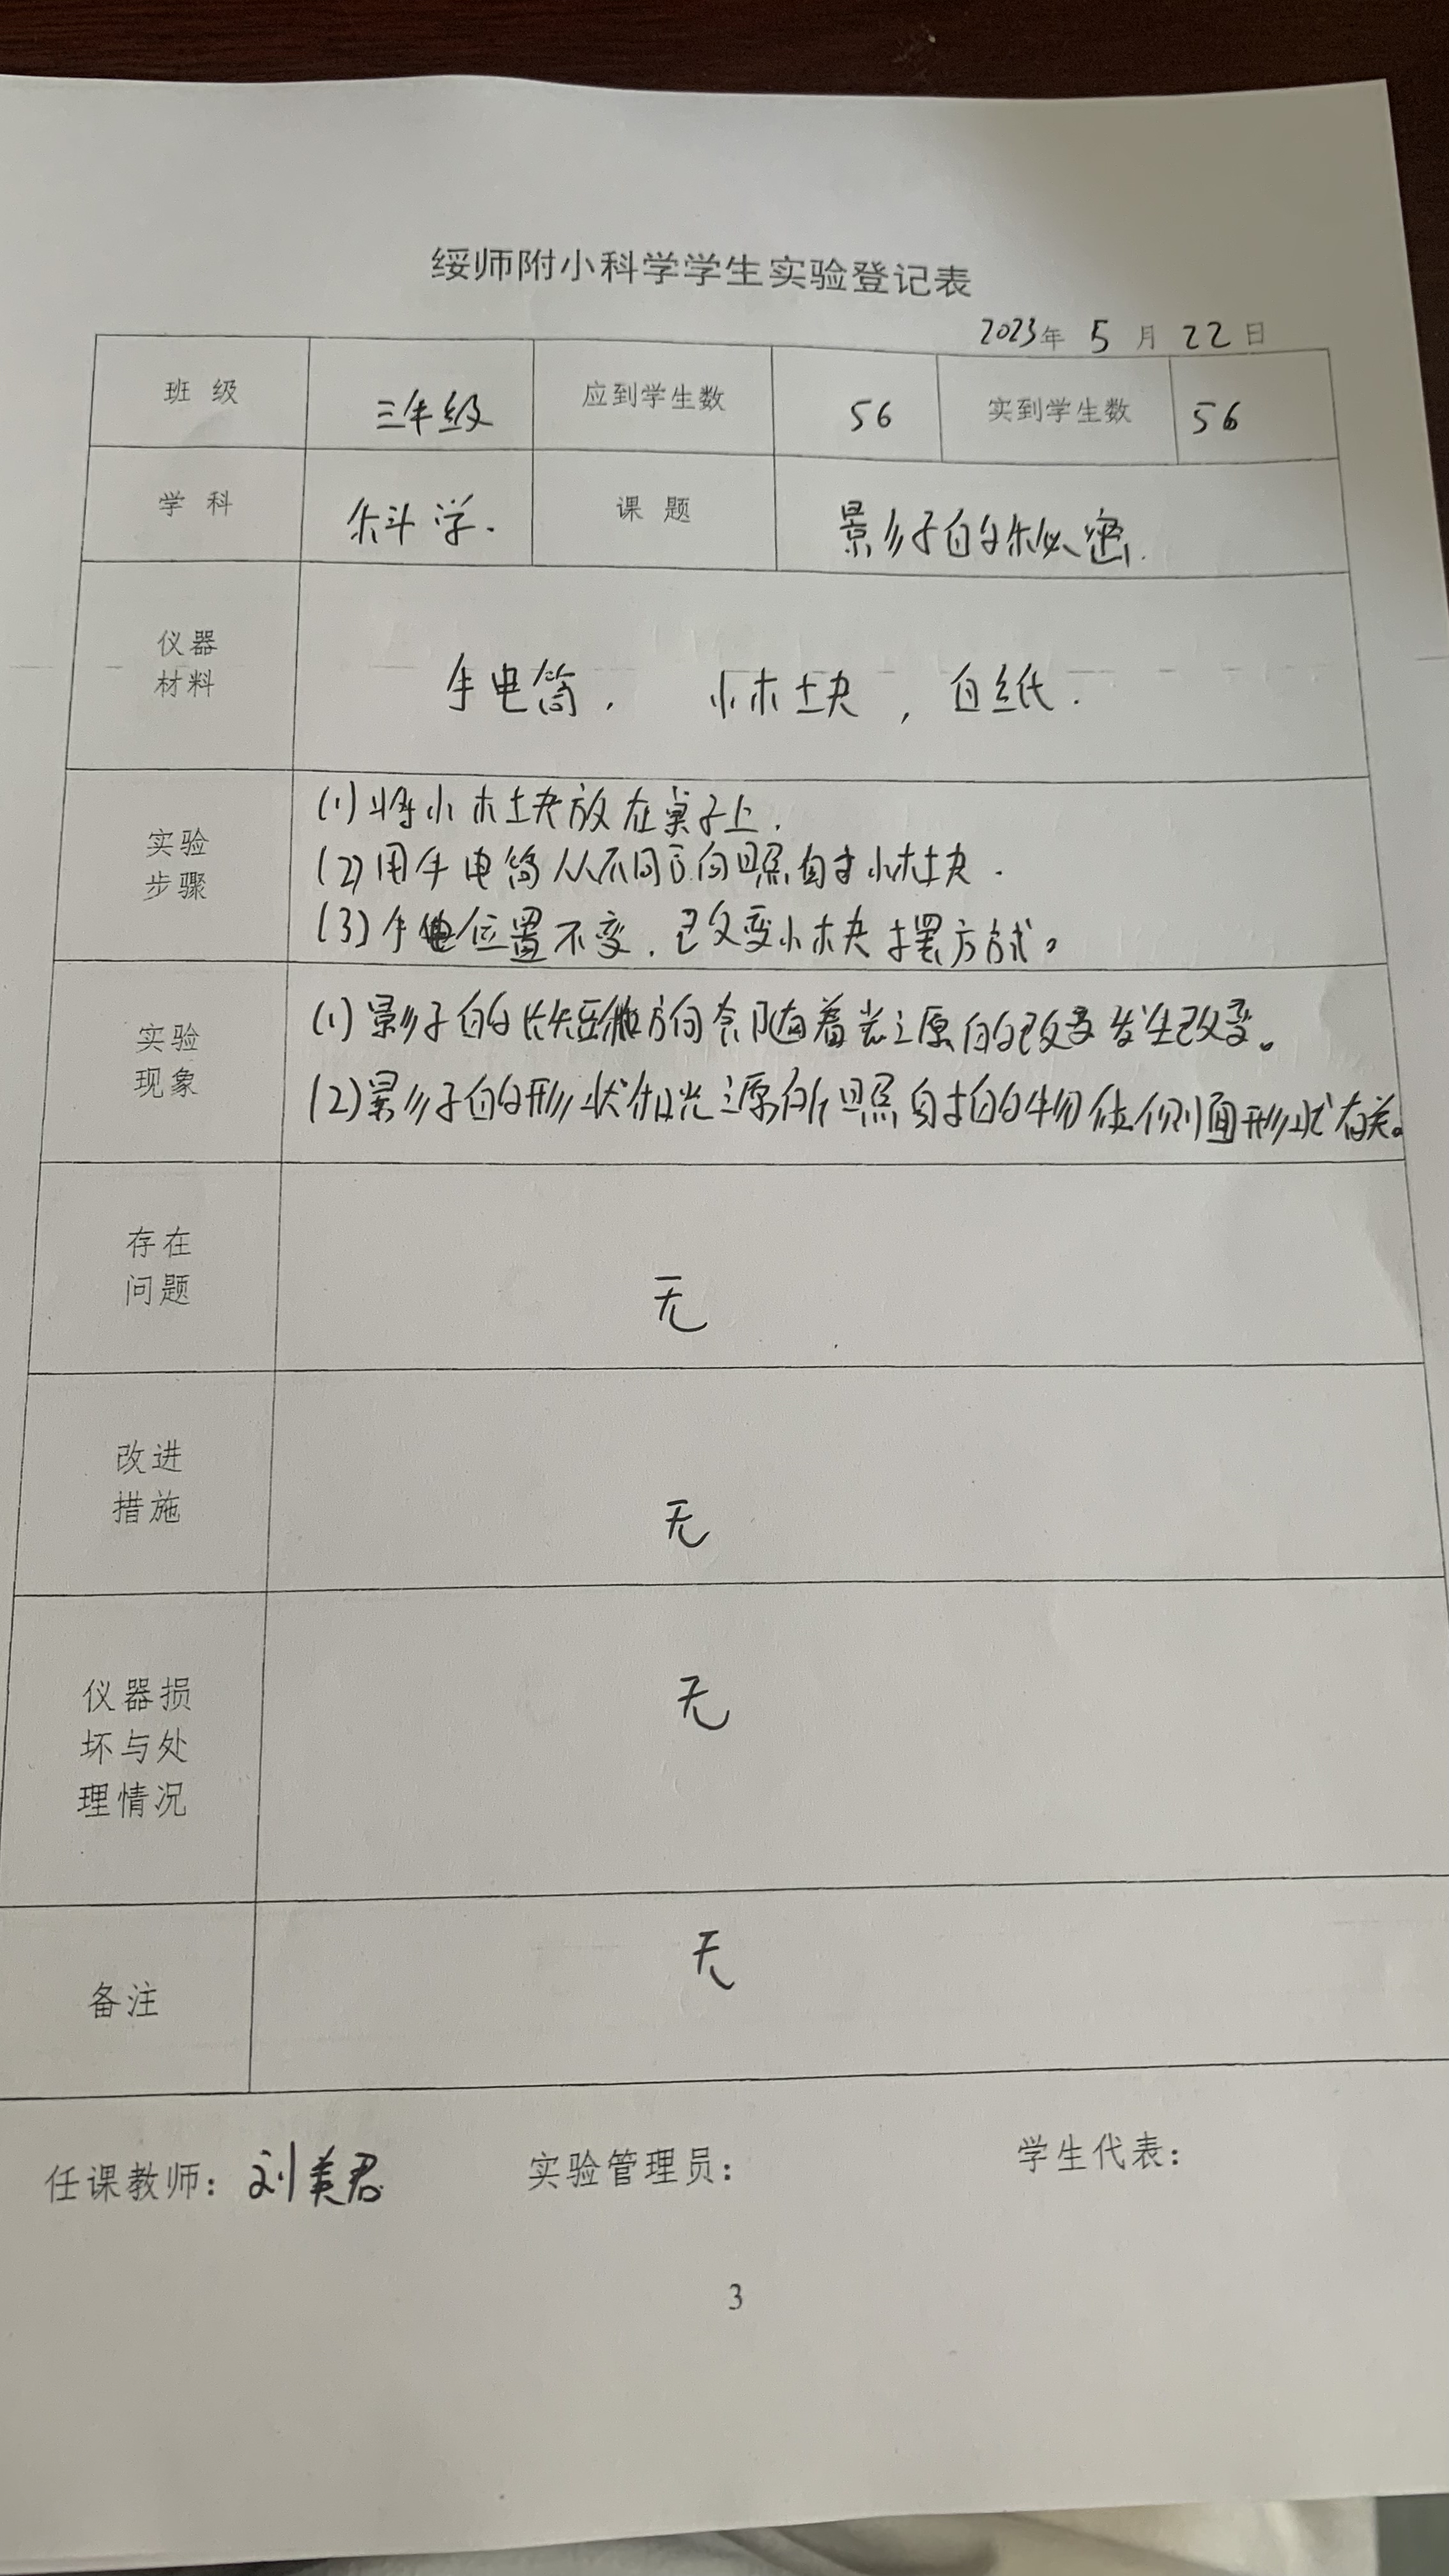 绥师附小科学学生实验登记表
2023年 5 月 22 日
班 级 三年级 应到学生数 56 实到学生数 56
学 科 科学. 课 题 影子的秘密.
仪器
材料
手电筒, 小木块, 白纸.
实验
步骤
(1)将小木块放在桌子上.
(2)用手电筒从不同方向照射小木块.
(3)手电位置不变,改变小木块摆方式。
实验
现象
(1)影子的长短和方向会随着光源的改变发生改变。
(2)影子的形状和光源所照射的物体侧面形状有关。
存在
问题
无
改进
措施
无
仪器损
坏与处
理情况
无
备注
无
任课教师: 刘美君 实验管理员: 学生代表:
3